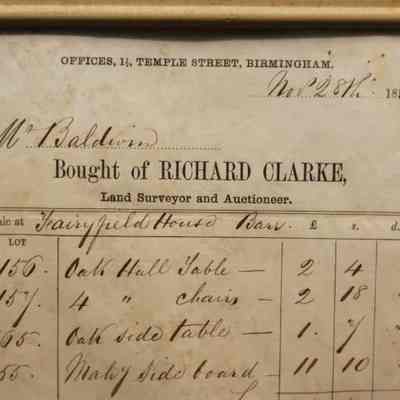 OFFICES, 1½, TEMPLE STREET, BIRMINGHAM.
Novr 28th 18
Mr Baldwin
Bought of RICHARD CLARKE,
Land Surveyor and Auctioneer.
ale at Fairyfield House Barr. £ s. d.
LOT
156. Oak Hall Table — 2 4
157. 4 " chairs — 2 18
65. Oak side table — 1. 7
55. Mahy side board — 11 10